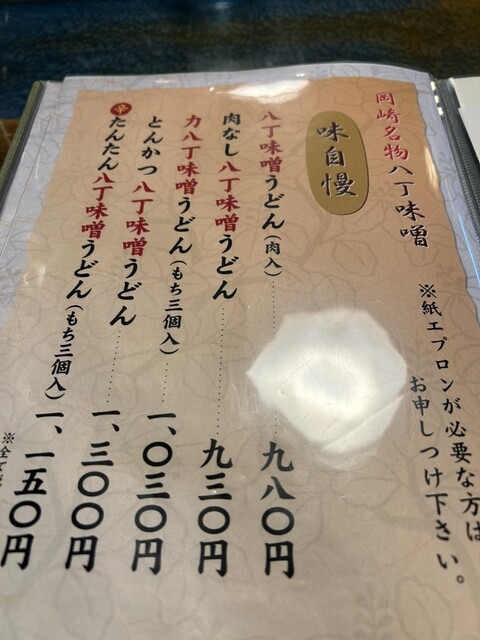 岡崎名物八丁味噌
※紙エプロンが必要な方は
お申しつけ下さい。
味自慢
八丁味噌うどん(肉入)………九八〇円
肉なし八丁味噌うどん………九三〇円
力八丁味噌うどん(もち三個入)……一、〇三〇円
とんかつ八丁味噌うどん………一、三〇〇円
辛たんたん八丁味噌うどん(もち三個入)一、一五〇円
※全て